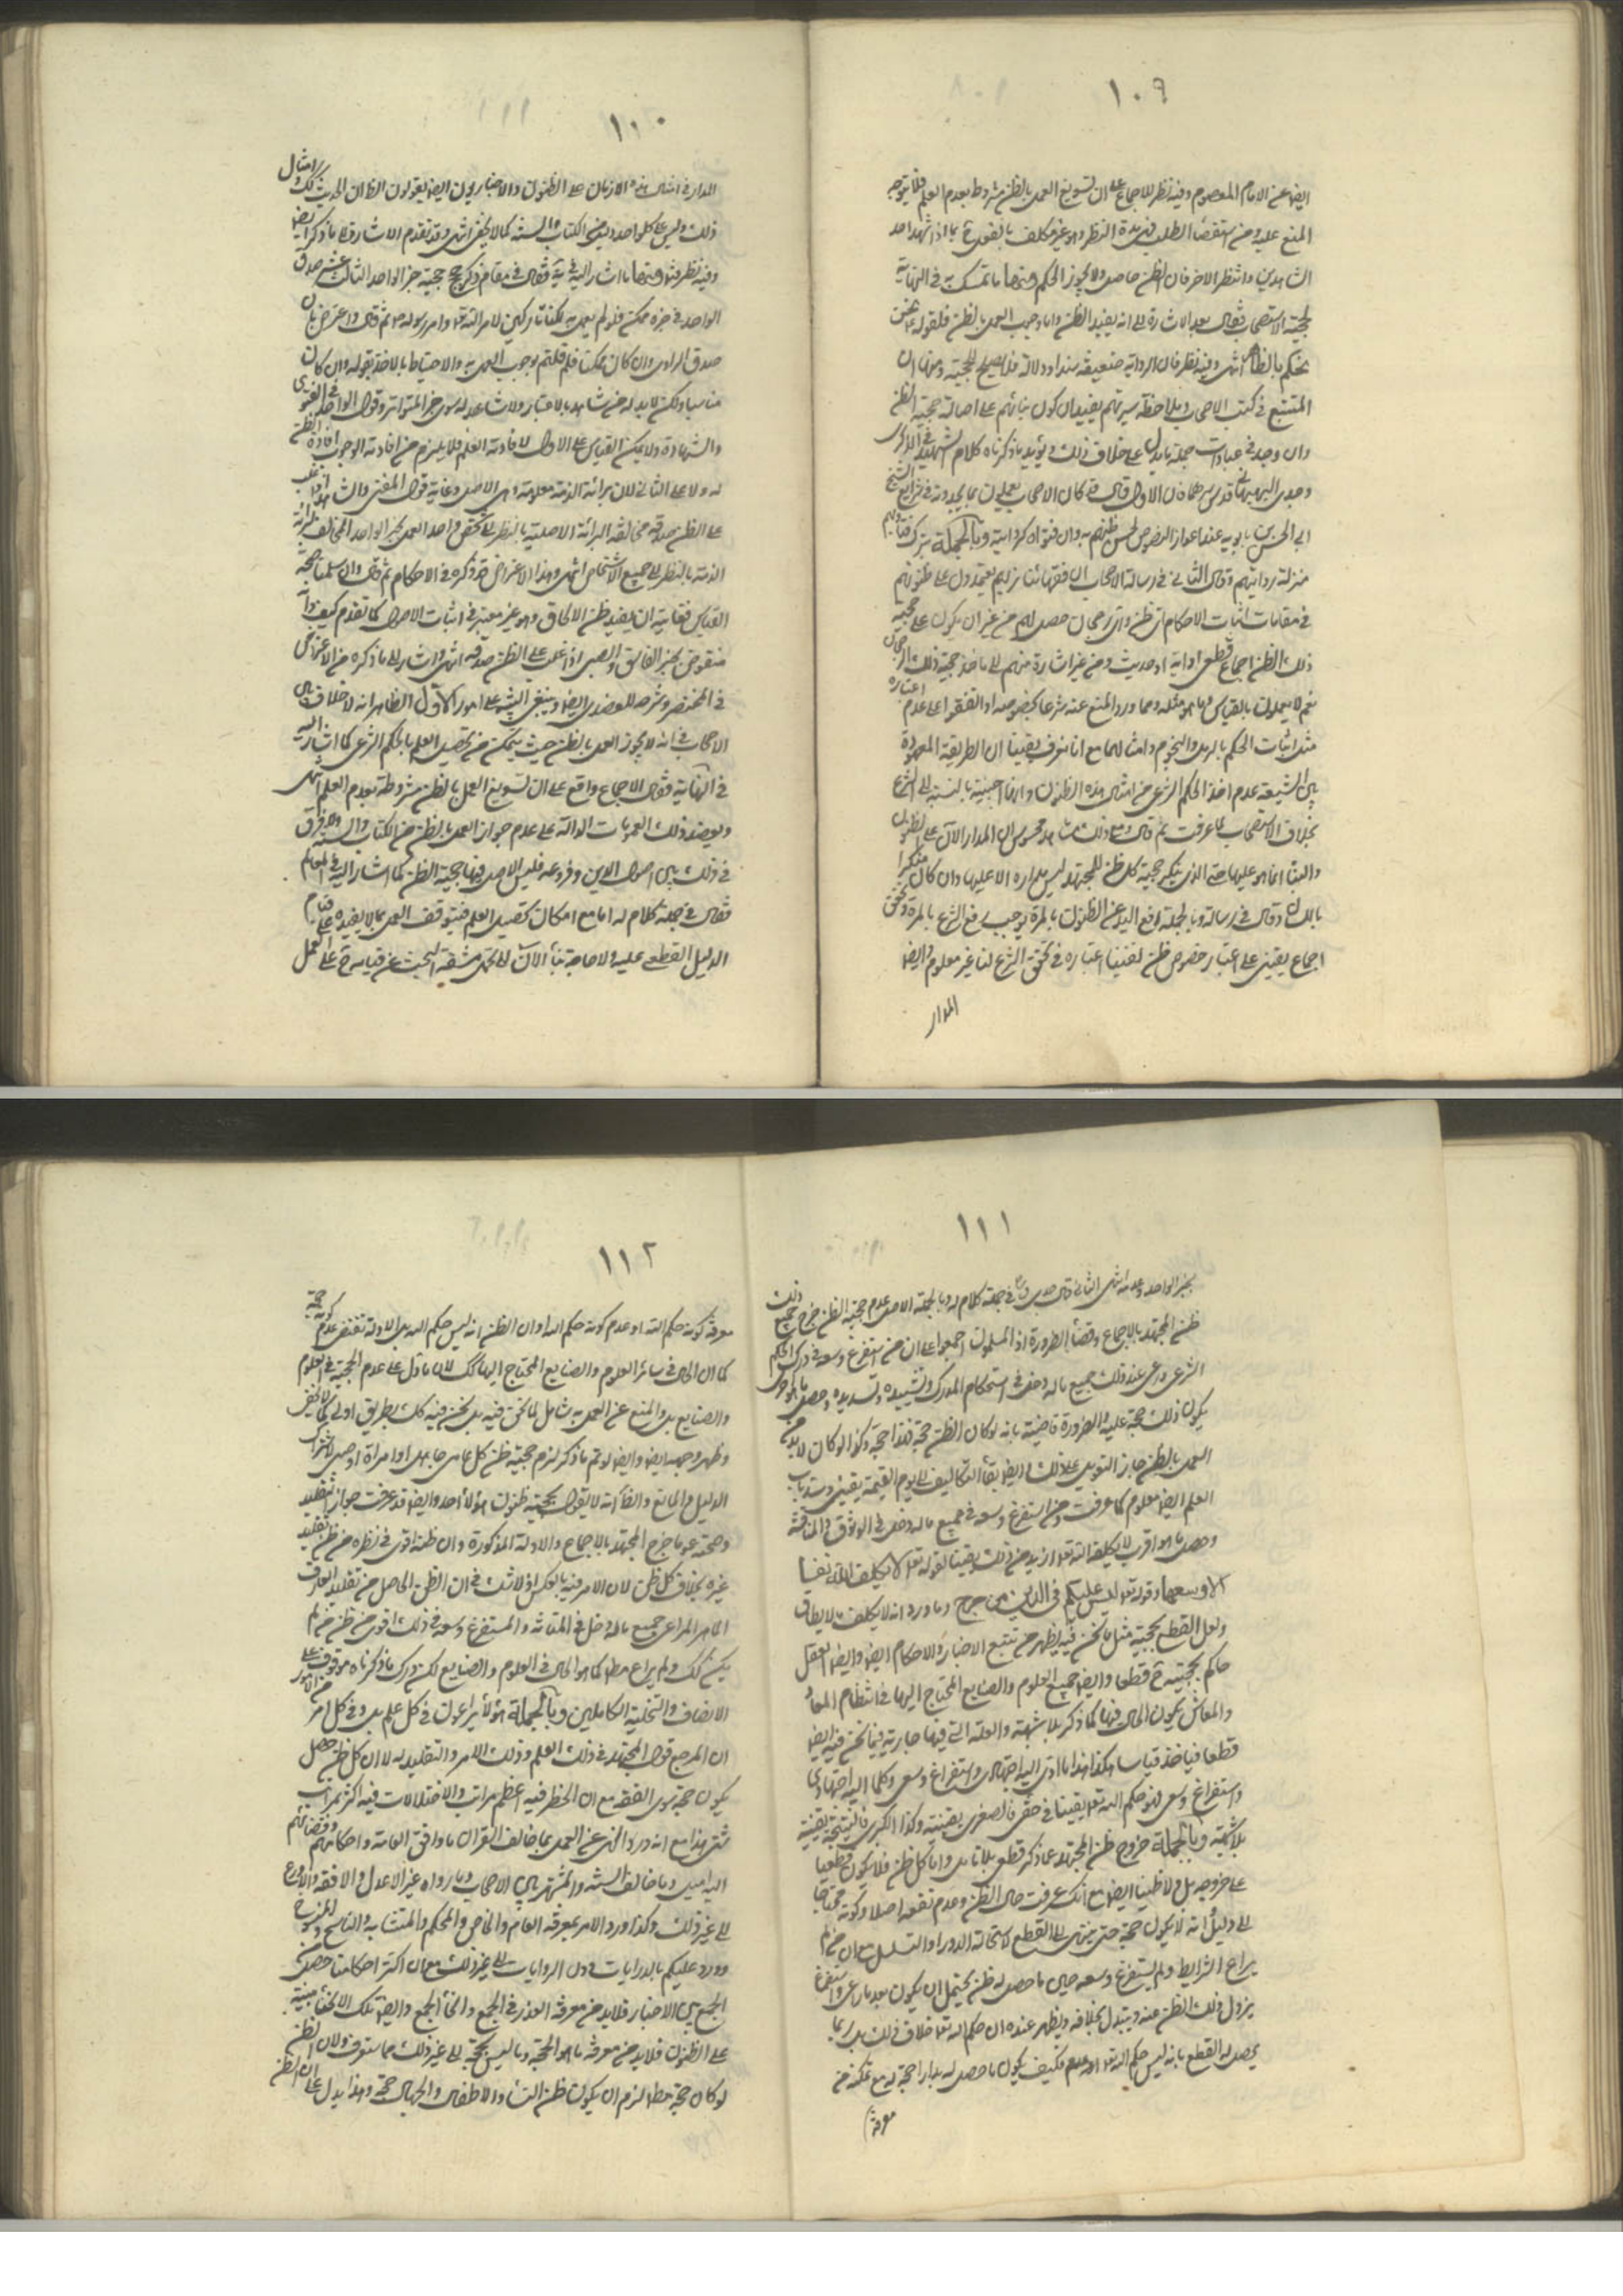 ١٠٩
ايض عن الامام المعصوم وفيه نظر للاجماع على ان تسويغ العمل بالظن مشروط بعدم العلم فلا يتوجه
المنع عليه ومن استقصاء الطلب في مدة النظر وهو غير مكلف بالفور بما اذا شهد احد
الشاهدين وانتظر الاخر فان الظن حاصل ولا يجوز الحكم ومنها ما تمسك به في النهاية
لحجية الاستصحاب فقال بعد الاشارة الى انه يفيد الظن واما وجوب العمل بالظن فلقوله نحن
نحكم بالظاهر انتهى وفيه نظر فان الرواية ضعيفة سندا ودلالة فلا تصلح للحجية ومنها ان
المتتبع في كتب الاصحاب وبملاحظة سيرتهم يفيدان كون بنائهم على اصالة حجية الظن
وان وجد في عبارات جملة ما يدل على خلاف ذلك ويؤيد ما ذكرناه كلام الشهيد في الذكرى
وجدي البهبهاني قدس سرهما فان الاول قال كان الاصحاب يعملون بما يجدونه في شرايع الشيخ
ابي الحسن بن بابويه عند اعواز النصوص لحسن ظنهم به وان فتواه كروايته وبالجملة تنزل فتاويهم
منزلة روايتهم وقال الثاني في رسالة الاصحاب ان فقهائنا نريهم يعتمدون على ظنونهم
في مقامات اثبات الاحكام اى ظن واى رجحان حصل لهم من غير ان يكون على حجية
ذلك الظن اجماع قطعي او اية او حديث ومن غير اشارة منهم الى ماخذ حجية ذلك الرجحان
نعم لا يعملون بالقياس وما هو مثله ومما ورد المنع عنه شرعا بخصوصه او اتفقوا على عدم اعتباره
مثل اثبات الحكم بالرمل والنجوم وامثالهما مع انا نعرف يقينا ان الطريقة المعهودة
بين الشيعة عدم اخذ الحكم الشرعي من امثال هذه الظنون وانها اجنبية بالنسبة الى الشرع
بخلاف الاستصحاب لما عرفت ثم قال ومع ذلك مشاهد محسوس ان المدار الان على الظنون
والبناء انما هو عليها حتى الذي ينكر حجية كل ظن للمجتهد ليس مداره الا عليها وان كان منكرا
باللسان وقال في رسالة وبالجملة رفع اليد عن الظنون بالمرة يوجب رفع الشرع بالمرة وتحقق
اجماع يقيني على اعتبار خصوص ظن لفينا اعتباره في تحقق الشرع لنا غير معلوم وايض
المدار
١١٠
المدار في امثال هذه الازمان على الظنون والاخباريون ايض يقولون الظان الحديث كك وامثال
ذلك وليس على كل واحد دليل من الكتاب والسنة كما لا يخفى انتهى وقد تقدم الاشارة الى ما ذكر ايض
وفيه نظر ومنها ما اشار اليه في ية فقال في مقام ذكر حجج حجية خبر الواحد الثالث عشر صدق
الواحد في خبره ممكن فلو لم يعمل به لكنا تاركين لامر الله تعالى وامر رسوله ص ثم قال واعترض بان
صدق الراوي وان كان ممكنا فلم قلتم بوجوب العمل به والاحتياط بالاخذ بقوله وان كان
مناسبا ولكن لا بد له من شاهد بالاعتبار ولا شاهد له سوى خبر المتواتر وقول الواحد في الفتوى
والشهادة ولا يمكن القياس على الاول لافادته العلم فلا يلزم من افادته الوجوب افادة الظن
له ولا على الثاني لان برائة الذمة معلومة وهى الاصل وغاية قول المفتي والشاهد اذا غلب
على الظن صدقه مخالفة البرائة الاصلية بالنظر الى شخص واحد العمل بخبر الواحد المخالف لبرائة
الذمة بالنظر الى جميع الاشخاص انتهى وهذا الاعتراض قد ذكره في الاحكام ثم قال وان سلمنا صحة
القياس فغايته ان يفيد ظن الالحاق وهو غير معتبر في اثبات الاصول كما تقدم كيف وانه
منقوض بخبر الفاسق والصبي اذا غلب على الظن صدقه انتهى واشار الى ما ذكره من الاعتراض
في المختصر وشرحه للعضدي ايض وينبغي التنبيه على امور الاول الظاهر انه لا خلاف بين
الاصحاب في انه لا يجوز العمل بالظن حيث يتمكن من تحصيل العلم بالحكم الشرعي كما اشار اليه
في النهاية فقال الاجماع واقع على ان تسويغ العمل بالظن مشروطة بعدم العلم انتهى
ويعضد ذلك العمومات الدالة على عدم جواز العمل بالظن من الكتاب والسنة ولا فرق
في ذلك بين اصول الدين وفروعه فليس الاصل فيها حجية الظن كما اشار اليه في المعالم
فقال في جملة كلام له اما مع امكان تحصيل العلم فيتوقف العمل بما لا يفيده على قيام
الدليل القطعي عليه ولا حاجة بنا الان الى تحمل مشقة البحث عن قيامه ح على العمل
١١١
بخبر الواحد وعدمه انتهى الثاني قال جدي ره في جملة كلام له وبالجملة الاصل عدم حجية الظن خرج من ذلك
ظن المجتهد بالاجماع وقضاء الضرورة اذ المسلمون اجمعوا على ان من استفرغ وسعه في درك الحكم
الشرعي وراعى عند ذلك جميع ماله دخل في استحكام المدرك وتشييده وتسديده وحصل ما هو احرى
يكون ذلك حجة عليه والضرورة قاضية بانه لو كان الظن حجة فهذا حجة وكذا لو كان لا بد من
العمل بالظن جاز التعويل على ذلك وايض بقاء التكاليف الى يوم القيمة يقيني وسد باب
العلم ايض معلوم كما عرفت ومن استفرغ وسعه في جميع ماله دخل في الوثوق والمتانة
وحصل ما هو اقرب لا يكلفه الله تعالى ازيد من ذلك يقينا لقوله تعالى لا يكلف الله نفسا
الا وسعها وقوله تعالى ليس عليكم في الدين من حرج وما ورد انه لا يكلف ما لا يطاق
ولعل القطع بحجية مثل ما نحن فيه يظهر من تتبع الاخبار والاحكام ايض وايض العقل
حاكم بحجيته ح قطعا وايض جميع العلوم والصنايع المحتاج اليها في انتظام المعاد
والمعاش يكون الحال فيها كما ذكر بلا شبهة والعلة التي فيها جارية فيما نحن فيه ايض
قطعا فياخذ قياسا هكذا هذا ما ادى اليه اجتهادي واستفراغ وسعي وكلما اليه اجتهادي
واستفراغ وسعي فهو حكم الله تعالى يقينا في حقي فالصغرى يقينية وكذا الكبرى فالنتيجة يقينية
بلا شبهة وبالجملة خروج ظن المجتهد عما ذكر قطعي بلا تامل واما كل ظن فلا يكون قطعيا
على خروجه بل ولا ظنيا ايض مع انك عرفت حال الظن وعدم نفعه اصلا وكونه محتاجا
الى دليل انه لا يكون حجة حتى ينتهى الى القطع لاستحالة الدور او التسلسل مع ان من لم
يراع الشرايط ولم يستفرغ وسعه حين ما حصل له ظن يحتمل ان يكون بعد ما راعى واستفرغ
يزول ذلك الظن عنه ويتبدل بخلافه ويظهر عنده ان حكم الله تعالى خلاف ذلك بل ربما
يحصل له القطع بانه ليس حكم الله تعالى فكيف يكون ما حصل له مدارا حجة له مع تمكنه من
معرفة
١١٢
معرفة كونه حكم الله او عدم كونه حكم الله او ان الظن انه ليس حكم الله بل الادلة تقتضي عدم كونه حجة
كما ان الحال في سائر العلوم والصنايع المحتاج اليها كك لان ما دل على عدم الحجية في العلوم
والصنايع بل والمنع عن العمل به شامل لما نحن فيه بل نحن فيه كك بطريق اولى كما لا يخفى
وظهر وجهه ايض وايض لو تم ما ذكر لزم حجية ظن كل عامي جاهل او امراة او صبي لاشتراك
الدليل والمانع والظاهر انه لا يقول بحجية ظنون هؤلاء احد وايض قد عرفت جواز التقليد
وصحته عموما خرج المجتهد بالاجماع والادلة المذكورة وان ظنه اقوى في نظره من ظن تقليد
غيره بخلاف كل ظن لان الامر فيه بالعكس اذ لا شك في ان الظن الحاصل من تقليد العارف
الماهر المراعي جميع ماله دخل في المتانة والمستفرغ وسعه في ذلك اقوى من ظن من لم
يكن كك ولم يراع مط كما هو الحال في العلوم والصنايع لكن درك ما ذكرناه موقوف على
الانصاف والتخلية الكاملين وبالجملة هؤلاء يراعون في كل علم بل وفي كل امر من الامور
ان المرجع قول المجتهد في ذلك العلم وذلك الامر والتقليد له لا ان كل ظن حصل
يكون حجة سوى الفقه مع ان الخطر فيه اعظم مراتب والاختلالات فيه اكثر بمراتب
شتى هذا مع انه ورد النهى عن العمل بما خالف القران ما وافق العامة واحكامهم وقضائهم
اليه اميل وما خالف السنة والمشتهر بين الاصحاب وما رواه غير الاعدل والافقه والاورع
الى غير ذلك وكذا ورد الامر بمعرفة العام والخاص والمحكم والمتشابه والناسخ والمنسوخ
وورد عليكم بالدرايات دون الروايات الى غير ذلك مع ان اكثر احكامنا حصل من
الجمع بين الاخبار فلا بد من معرفة العذر في الجمع وانحاء الجمع وايض تلك الانحاء مبنية
على الظنون فلا بد من معرفة ما هو الحجة وما ليس بحجة الى غير ذلك مما ستعرف ولان الظن
لو كان حجة مط لزم ان يكون ظن النساء والاطفال والجهال حجة وهذا يدل على ان الظن